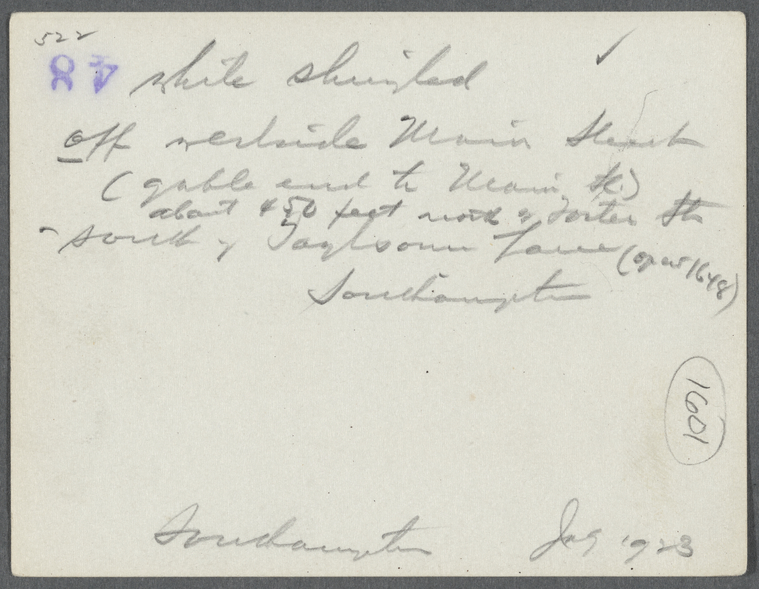 522 ✓
48 white shingled
off westside Main Street
(gable end to Main St.)
about 450 feet north of Foster St
- south of Toylsome Lane (open 1648)
Southampton
1601
Southampton 1923